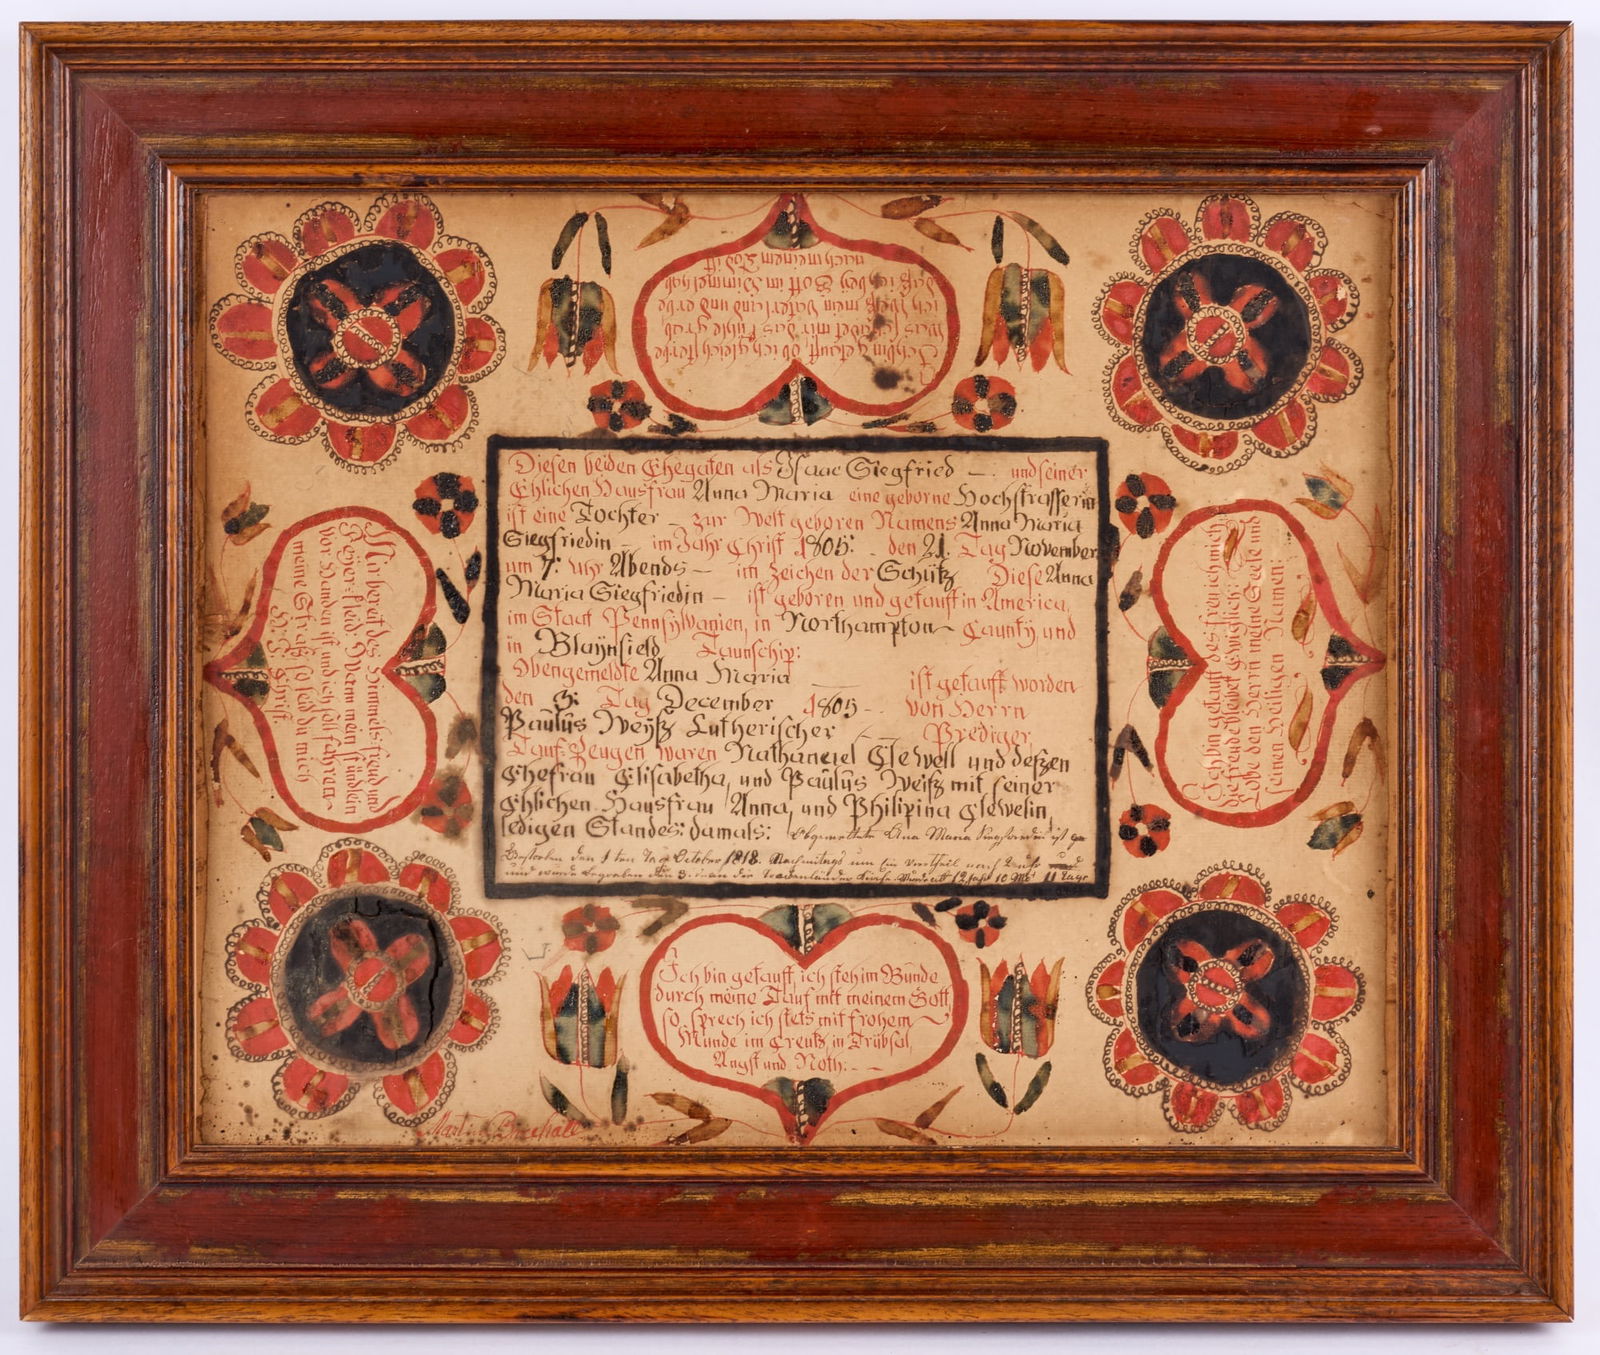 Ich bin getauft, ob ich gleich sterbe
was schadet mir das kühle grab
ich weiß mein Vaterland und erbe
daß ich bey Gott im Himmel hab
nach meinem Tod ist
Diesen beiden Ehegaten als Isaac Siegfried — und seiner
Ehlichen Hausfrau Anna Maria eine geborne Hochstrasserin
ist eine Tochter — zur Welt geboren Namens Anna Maria
Siegfriedin — im Jahr Christ 1805: den 21. Tag November
um 7: uhr Abends — im Zeichen der Schütz Diese Anna
Maria Siegfriedin — ist geboren und getauft in America,
im Staat Pennsylvanien, in Northampton Caunty, und
in Blaynfield Taunschip:
Obengemeldte Anna Maria — ist getauft worden
den 3: Tag December 1805 — von Herrn
Paulus Weyß Lutherischer — Prediger,
Tauf-Zeugen waren Nathaneiel Clewell und deßen
Ehefrau Elisabetha, und Paulus Weiß mit seiner
Ehlichen Hausfrau Anna, und Philipina Clewelin,
ledigen Standes: damals: Obgemeltete Ana Maria Siegfriedin ist ge
Gestorben den 1ten Tag October 1818. Nachmitags um Ein Viertheil nach
und wurde begraben den 3. an der Kirche 12 Jahr 10 Mo 11 Tage
Mir bereit des Himmels freud und
Feyer-kleid. Wenn mein stündlein
vorhanden ist und ich soll fahren
meine Straß so leid du mich
H: Christ.
Ich bin getauft des freu ich mich
die freude bleibet Ewiglich:
Lobe den Herrn meine Seele und
seinen Heiligen Namen:
Ich bin getauft, ich steh im Bunde
durch meine Tauf mit meinem Gott,
so sprech ich stets mit frohem
Munde im Creutz, in Trübsal,
Angst und Noth: —